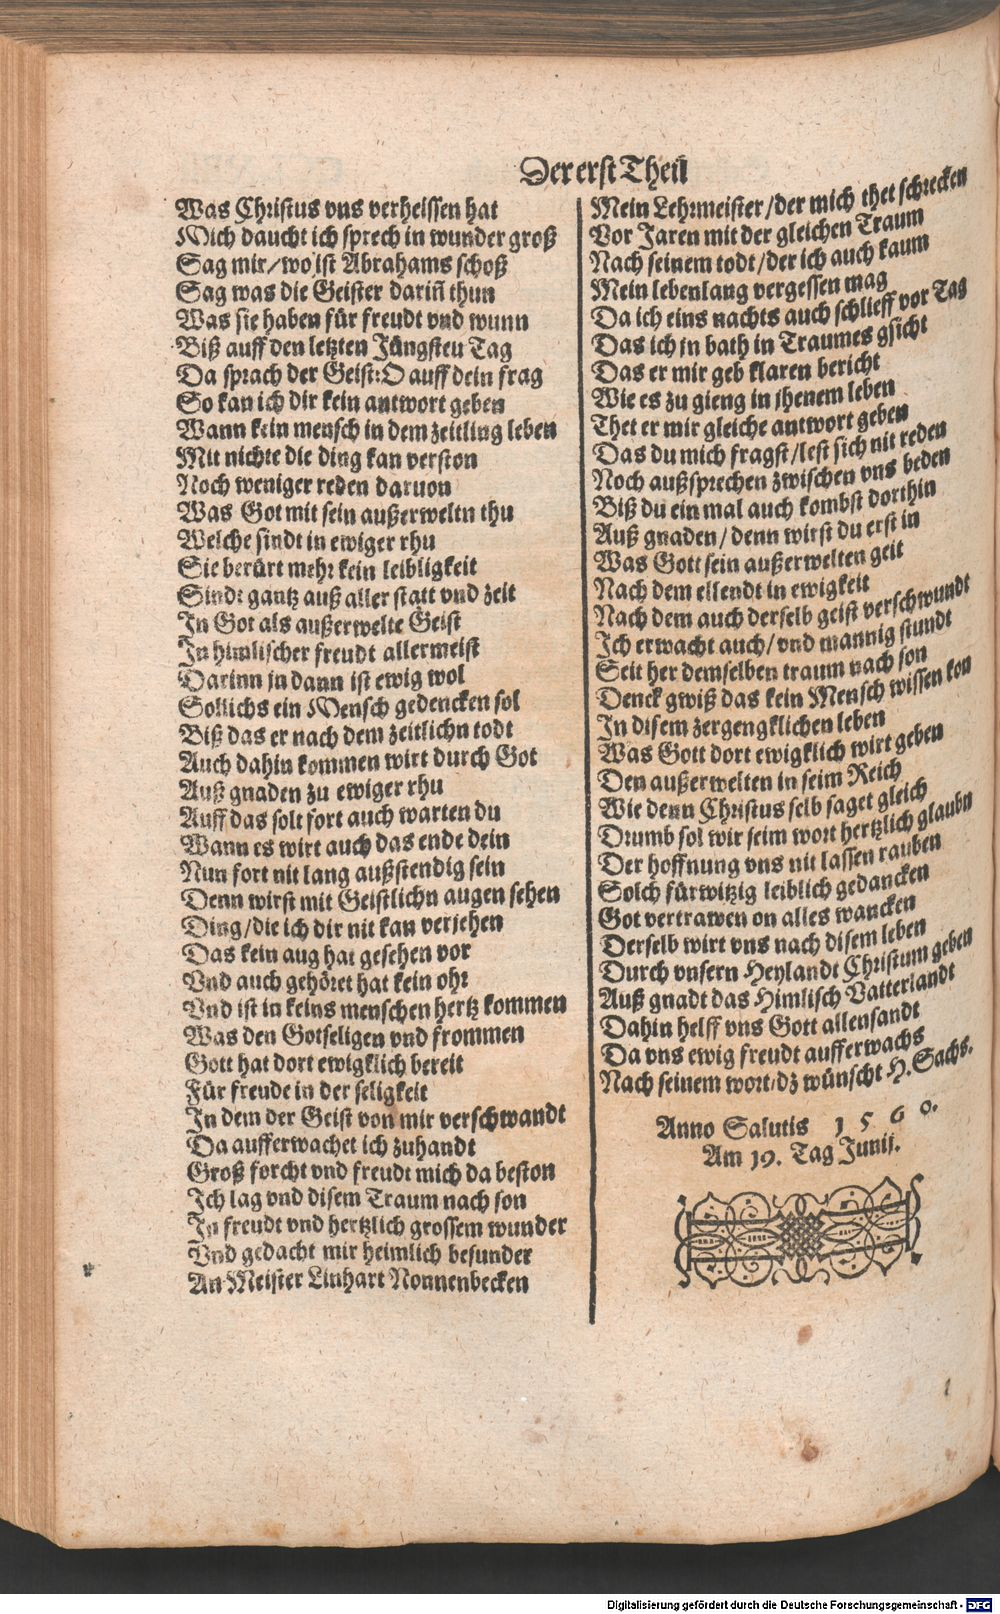 Der erst Theil
Was Christus vns verheissen hat
Mich daucht ich sprech in wunder groß
Sag mir/ wo ist Abrahams schoß
Sag was die Geister dariñ thun
Was sie haben für freudt vnd wunn
Biß auff den letzten Jüngsten Tag
Da sprach der Geist: O auff dein frag
So kan ich dir kein antwort geben
Wann kein mensch in dem zeitling leben
Mit nichte die ding kan verston
Noch weniger reden daruon
Was Got mit sein außerweltn thu
Welche sindt in ewiger rhu
Sie berürt mehr kein leibligkeit
Sindt gantz auß aller statt vnd zeit
In Got als außerwelte Geist
In himlischer freudt allermeist
Darinn jn dann ist ewig wol
Sollichs ein Mensch gedencken sol
Biß das er nach dem zeitlichn todt
Auch dahin kommen wirt durch Got
Auß gnaden zu ewiger rhu
Auff das solt fort auch warten du
Wann es wirt auch das ende dein
Nun fort nit lang außstendig sein
Denn wirst mit Geistlichn augen sehen
Ding/ die ich dir nit kan verjehen
Das kein aug hat gesehen vor
Vnd auch gehöret hat kein ohr
Vnd ist in keins menschen hertz kommen
Was den Gotseligen vnd frommen
Gott hat dort ewigklich bereit
Für freude in der seligkeit
In dem der Geist von mir verschwandt
Da aufferwachet ich zuhandt
Groß forcht vnd freudt mich da beston
Ich lag vnd disem Traum nach son
In freudt vnd hertzlich grossem wunder
Vnd gedacht mir heimlich besunder
An Meister Linhart Nonnenbecken
Mein Lehrmeister/ der mich thet schrecken
Vor Jaren mit der gleichen Traum
Nach seinem todt/ der ich auch kaum
Mein lebenlang vergessen mag
Da ich eins nachts auch schlieff vor Tag
Das ich jn bath in Traumes gsicht
Das er mir geb klaren bericht
Wie es zu gieng in jhenem leben
Thet er mir gleiche antwort geben
Das du mich fragst/ lest sich nit reden
Noch außsprechen zwischen vns beden
Biß du ein mal auch kombst dorthin
Auß gnaden/ denn wirst du erst in
Was Gott sein außerwelten geit
Nach dem ellendt in ewigkeit
Nach dem auch derselb geist verschwundt
Ich erwacht auch/ vnd mannig stundt
Seit her demselben traum nach son
Denck gwiß das kein Mensch wissen kon
In disem zergengklichen leben
Was Gott dort ewigklich wirt geben
Den außerwelten in seim Reich
Wie denn Christus selb saget gleich
Drumb sol wir seim wort hertzlich glaubn
Der hoffnung vns nit lassen rauben
Solch fürwitzig leiblich gedancken
Got vertrawen on alles wancken
Derselb wirt vns nach disem leben
Durch vnsern Heylandt Christum geben
Auß gnadt das Himlisch Vatterlandt
Dahin helff vns Gott allensandt
Da vns ewig freudt aufferwachs
Nach seinem wort/ dz wünscht H. Sachs.
Anno Salutis 1560.
Am 19. Tag Junij.
Digitalisierung gefördert durch die Deutsche Forschungsgemeinschaft - DFG